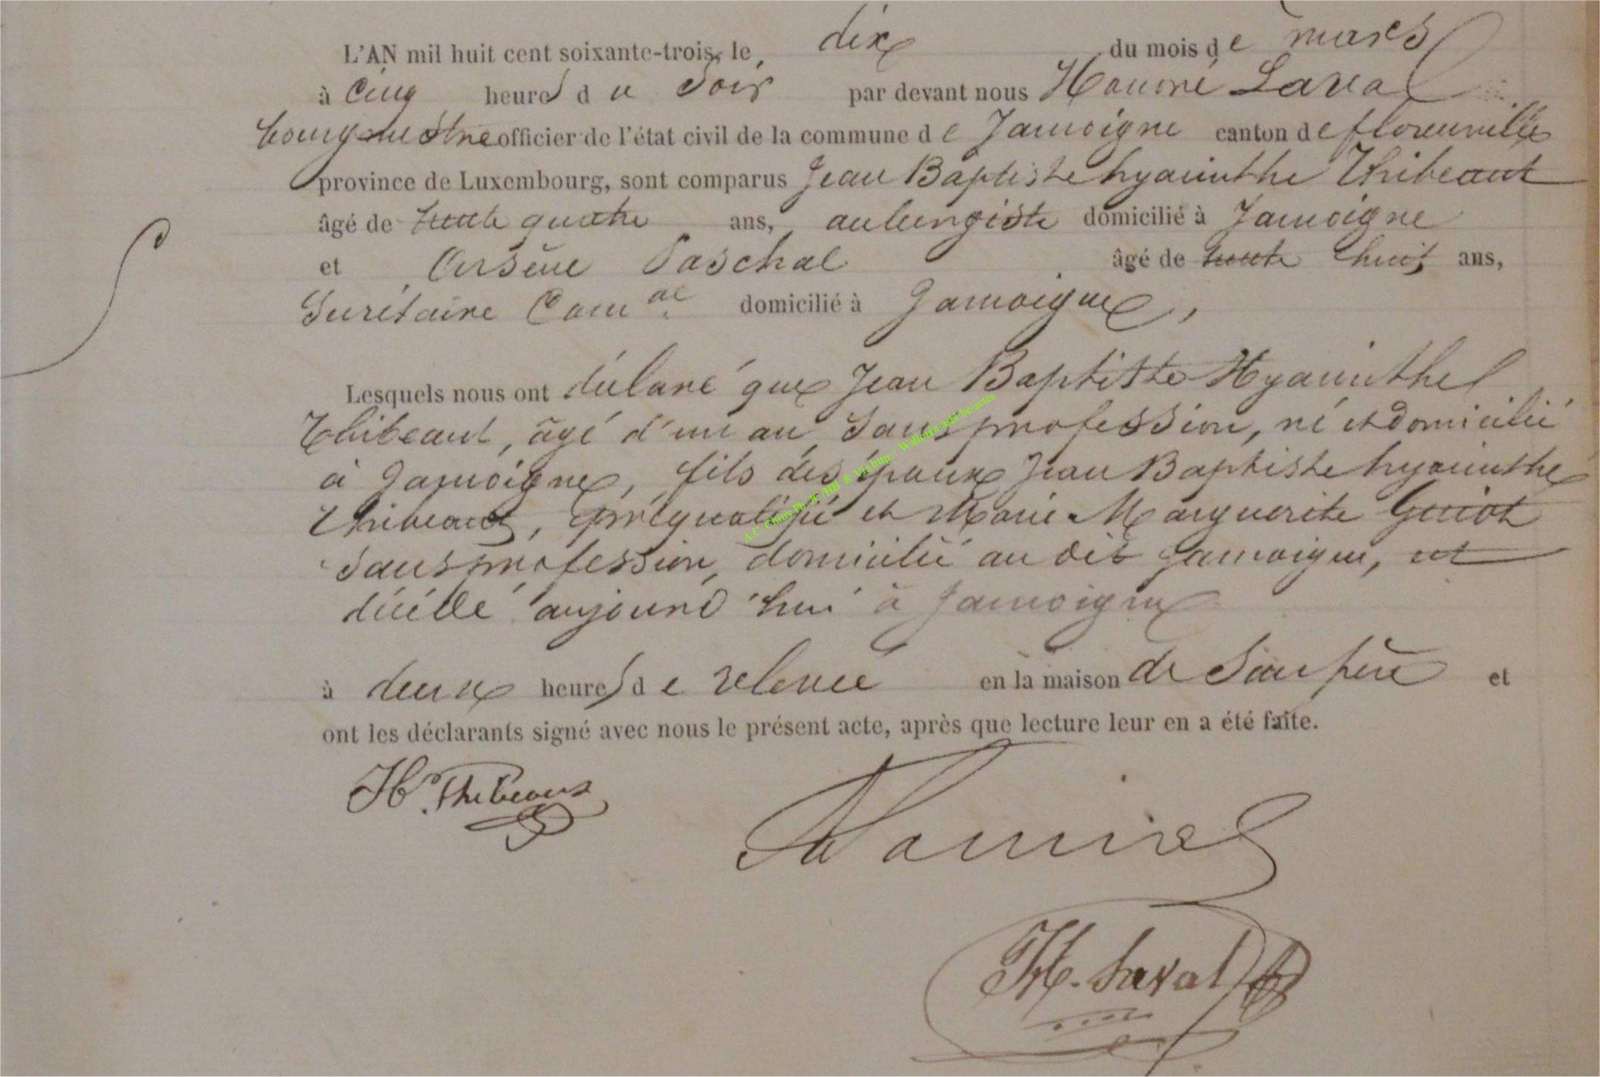 L'AN mil huit cent soixante-trois, le dix du mois de mars
à Cinq heures du Soir par devant nous Honoré Laval
bourgmestre officier de l'état civil de la commune de Jamoigne canton de florenville
province de Luxembourg, sont comparus Jean Baptiste hyacinthe Thibeaut
âgé de trente quatre ans, aubergiste domicilié à Jamoigne
et Arsène Paschal âgé de trente huit ans,
Secrétaire Com.al domicilié à Jamoigne,
Lesquels nous ont déclaré que Jean Baptiste Hyacinthe
Thibeaut, âgé d'un an, Sans profession, né et domicilié
à Jamoigne, fils des époux Jean Baptiste hyacinthe
Thibeaut, préqualifié et Marie Marguerite Guiot
Sans profession, domicilié au dit Jamoigne, est
décédé aujourd'hui à Jamoigne
à deux heures de relevée en la maison de Son père et
ont les déclarants signé avec nous le présent acte, après que lecture leur en a été faite.
Hte. Thibeaut
H. Laval